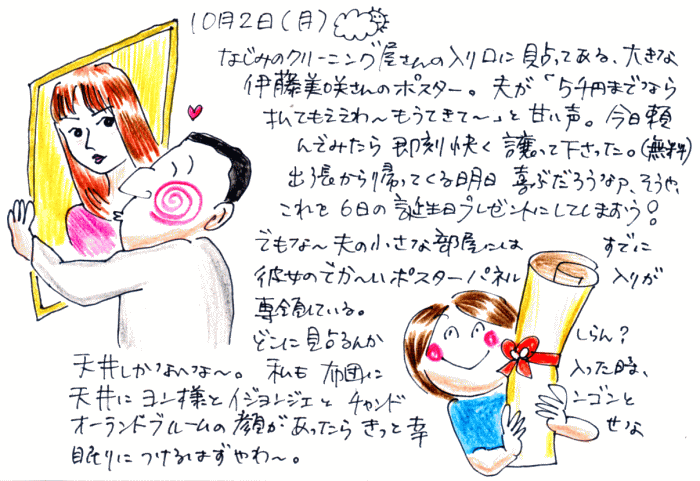 10月2日(月)
なじみのクリーニング屋さんの入り口に見占ってある、大きな
伊藤美咲さんのポスター。夫が「5千円までなら
払てもええわ〜もうてきて〜」と甘い声。今日頼
んでみたら即刻快く譲って下さった。(無料)
出張から帰ってくる明日喜ぶだろうなァ、そうや、
これを6日の誕生日プレゼントにしてしまおう!
でもな〜夫の小さな部屋には すでに
彼女のでか〜いポスターパネル 入りが
専領している。
どこに見占るんか しらん?
天井しかないな〜。 私も布団に 入った時、
天井にヨン様とイジョンジェとチャンド ンゴンと
オーランドブルームの顔があったらきっと幸 せな
眠りにつけるはずやわ〜。